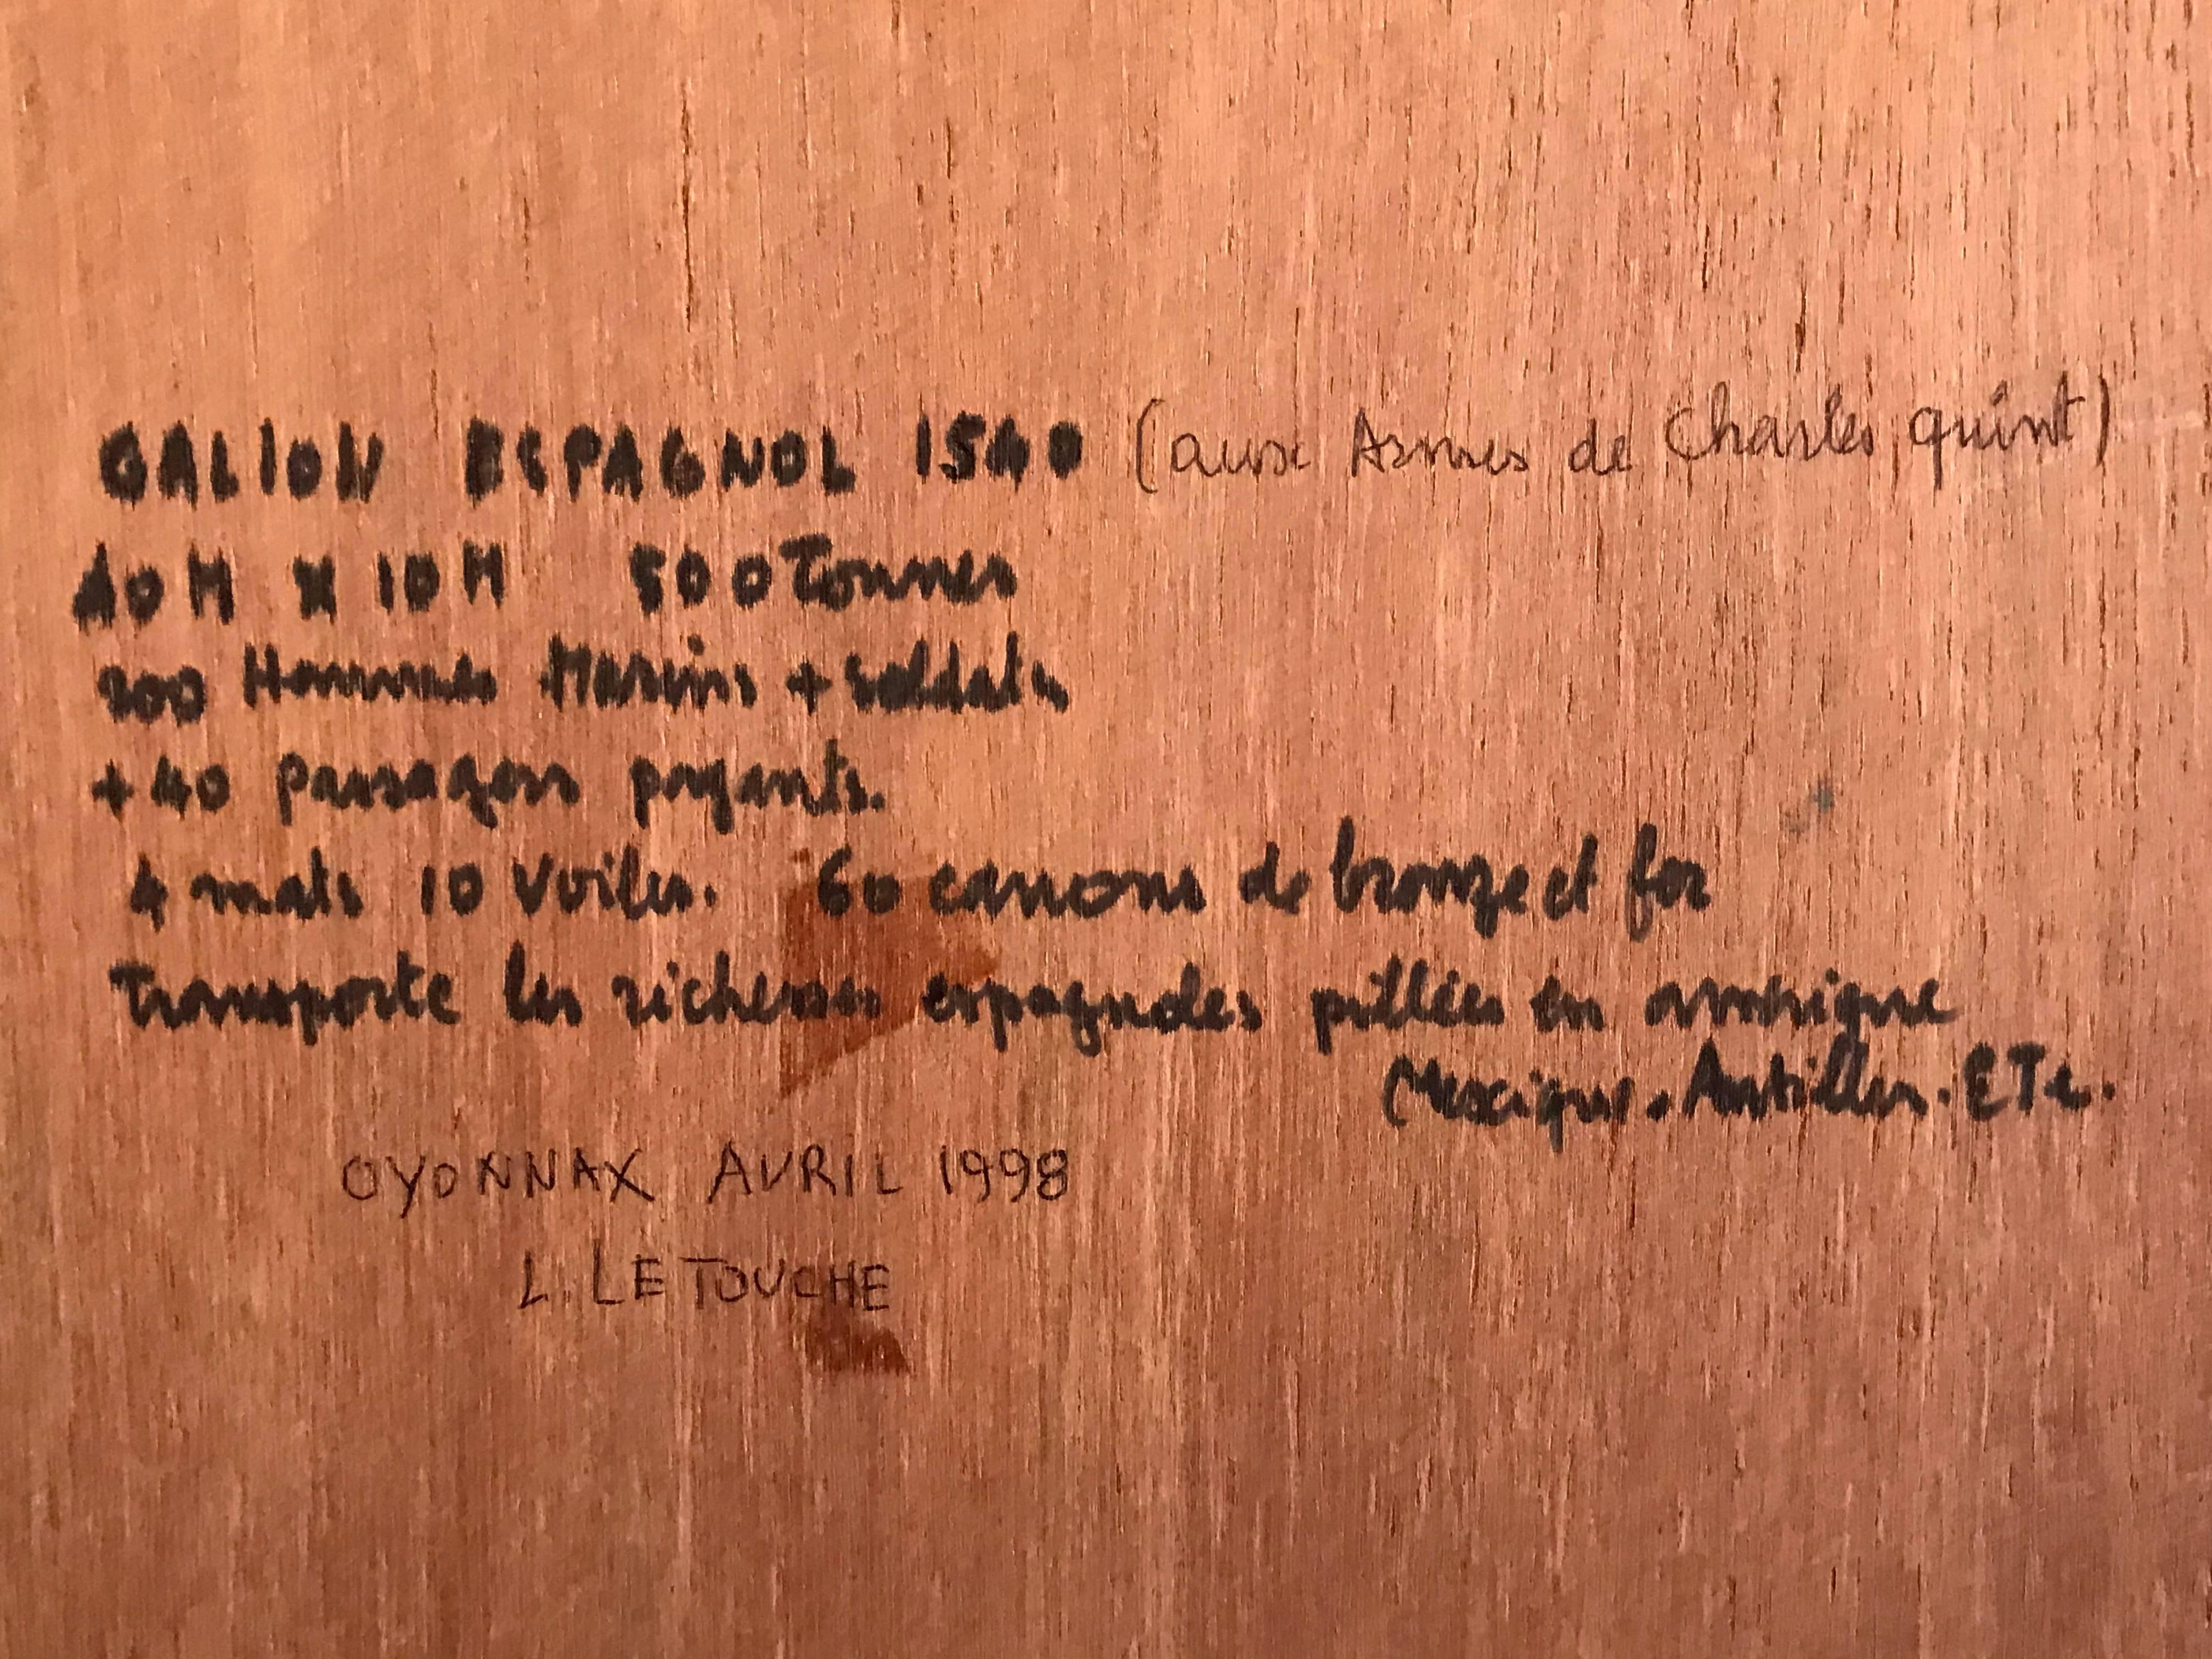 GALION ESPAGNOL 1540 (aux Armes de Charles quint)
40 M X 10 M 500 Tonnes
200 Hommes Marins + soldats
+ 40 passagers payants.
4 mats 10 Voiles. 60 canons de bronze et fer
Transporte les richesses espagnoles pillées en amérique
Mexique. Antilles. ETc.
OYONNAX AVRIL 1998
L. LETOUCHE